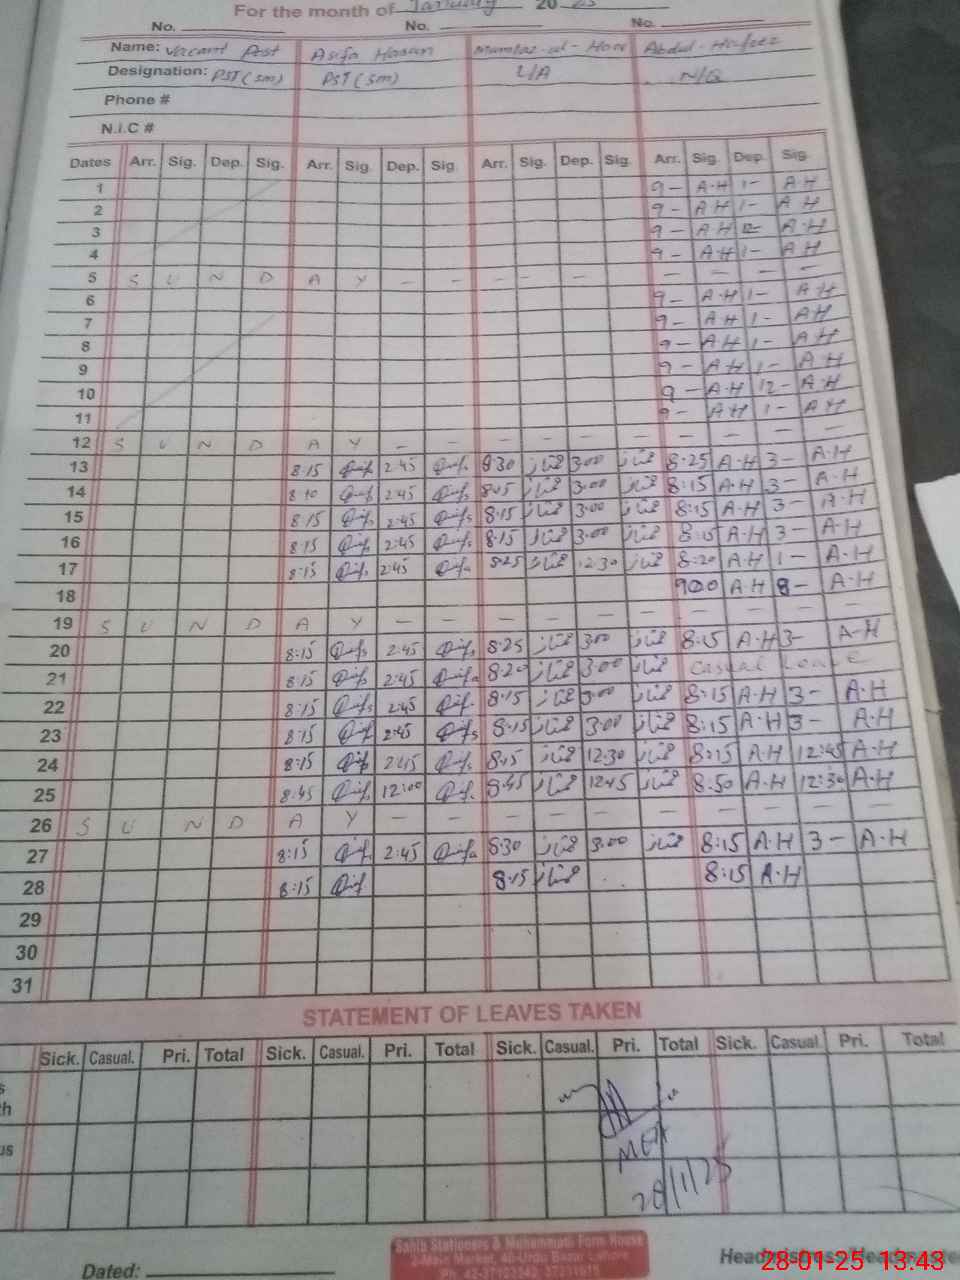 For the month of January 20 25
No. No. No.
Name: Vacant Post Asifa Hassan Mumtaz-ul- Abdul-Hafeez
Designation: PST(sm) PST(sm) L/A N/Q
Phone #
N.I.C #
Dates Arr. Sig. Dep. Sig. Arr. Sig Dep. Sig Arr. Sig. Dep. Sig. Arr. Sig. Dep. Sig.
1 9- A·H 1- A H
2 9- A H 1- A H
3 9- A H 12- A·H
4 9- A·H 1- A H
5 S U N D A Y - - - - - - - - - -
6 9- A·H 1- A H
7 9- A H 1- A H
8 9- A H 1- A·H
9 9- A H 1- A·H
10 9- A·H 12- A·H
11 9- A·H 1- A·H
12 S U N D A Y - - - - - - - - - -
13 8:15 2:45 8:30 ممتاز 3:00 ممتاز 8:25 A·H 3- A·H
14 8:10 2:45 8:15 ممتاز 3:00 ممتاز 8:15 A·H 3- A·H
15 8:15 2:45 8:15 ممتاز 3:00 ممتاز 8:15 A·H 3- A·H
16 8:15 2:45 8:15 ممتاز 3:00 ممتاز 8:15 A·H 3- A·H
17 8:15 2:45 8:25 ممتاز 12:30 ممتاز 8:20 A·H 1- A·H
18 9:00 A·H 8- A·H
19 S U N D A Y - - - - - - - - - -
20 8:15 2:45 8:25 ممتاز 3:00 ممتاز 8:15 A·H 3- A-H
21 8:15 2:45 8:20 ممتاز 3:00 ممتاز Casual Leave
22 8:15 2:45 8:15 ممتاز 3:00 ممتاز 8:15 A·H 3- A·H
23 8:15 2:45 8:15 ممتاز 3:00 ممتاز 8:15 A·H 3- A·H
24 8:15 2:45 8:15 ممتاز 12:30 ممتاز 8:15 A·H 12:45 A·H
25 8:45 12:00 8:45 ممتاز 12:45 ممتاز 8:50 A·H 12:30 A·H
26 S U N D A Y - - - - - - - - - -
27 8:15 2:45 8:30 ممتاز 3:00 ممتاز 8:15 A·H 3- A·H
28 8:15 8:15 ممتاز 8:15 A·H
29
30
31
STATEMENT OF LEAVES TAKEN
Sick. Casual. Pri. Total Sick. Casual. Pri. Total Sick. Casual. Pri. Total Sick. Casual. Pri. Total
MEA
28/1/25
Stationers & Muhammadi Form House
Urdu Bazar, Lahore
Dated:
28-01-25 13:43